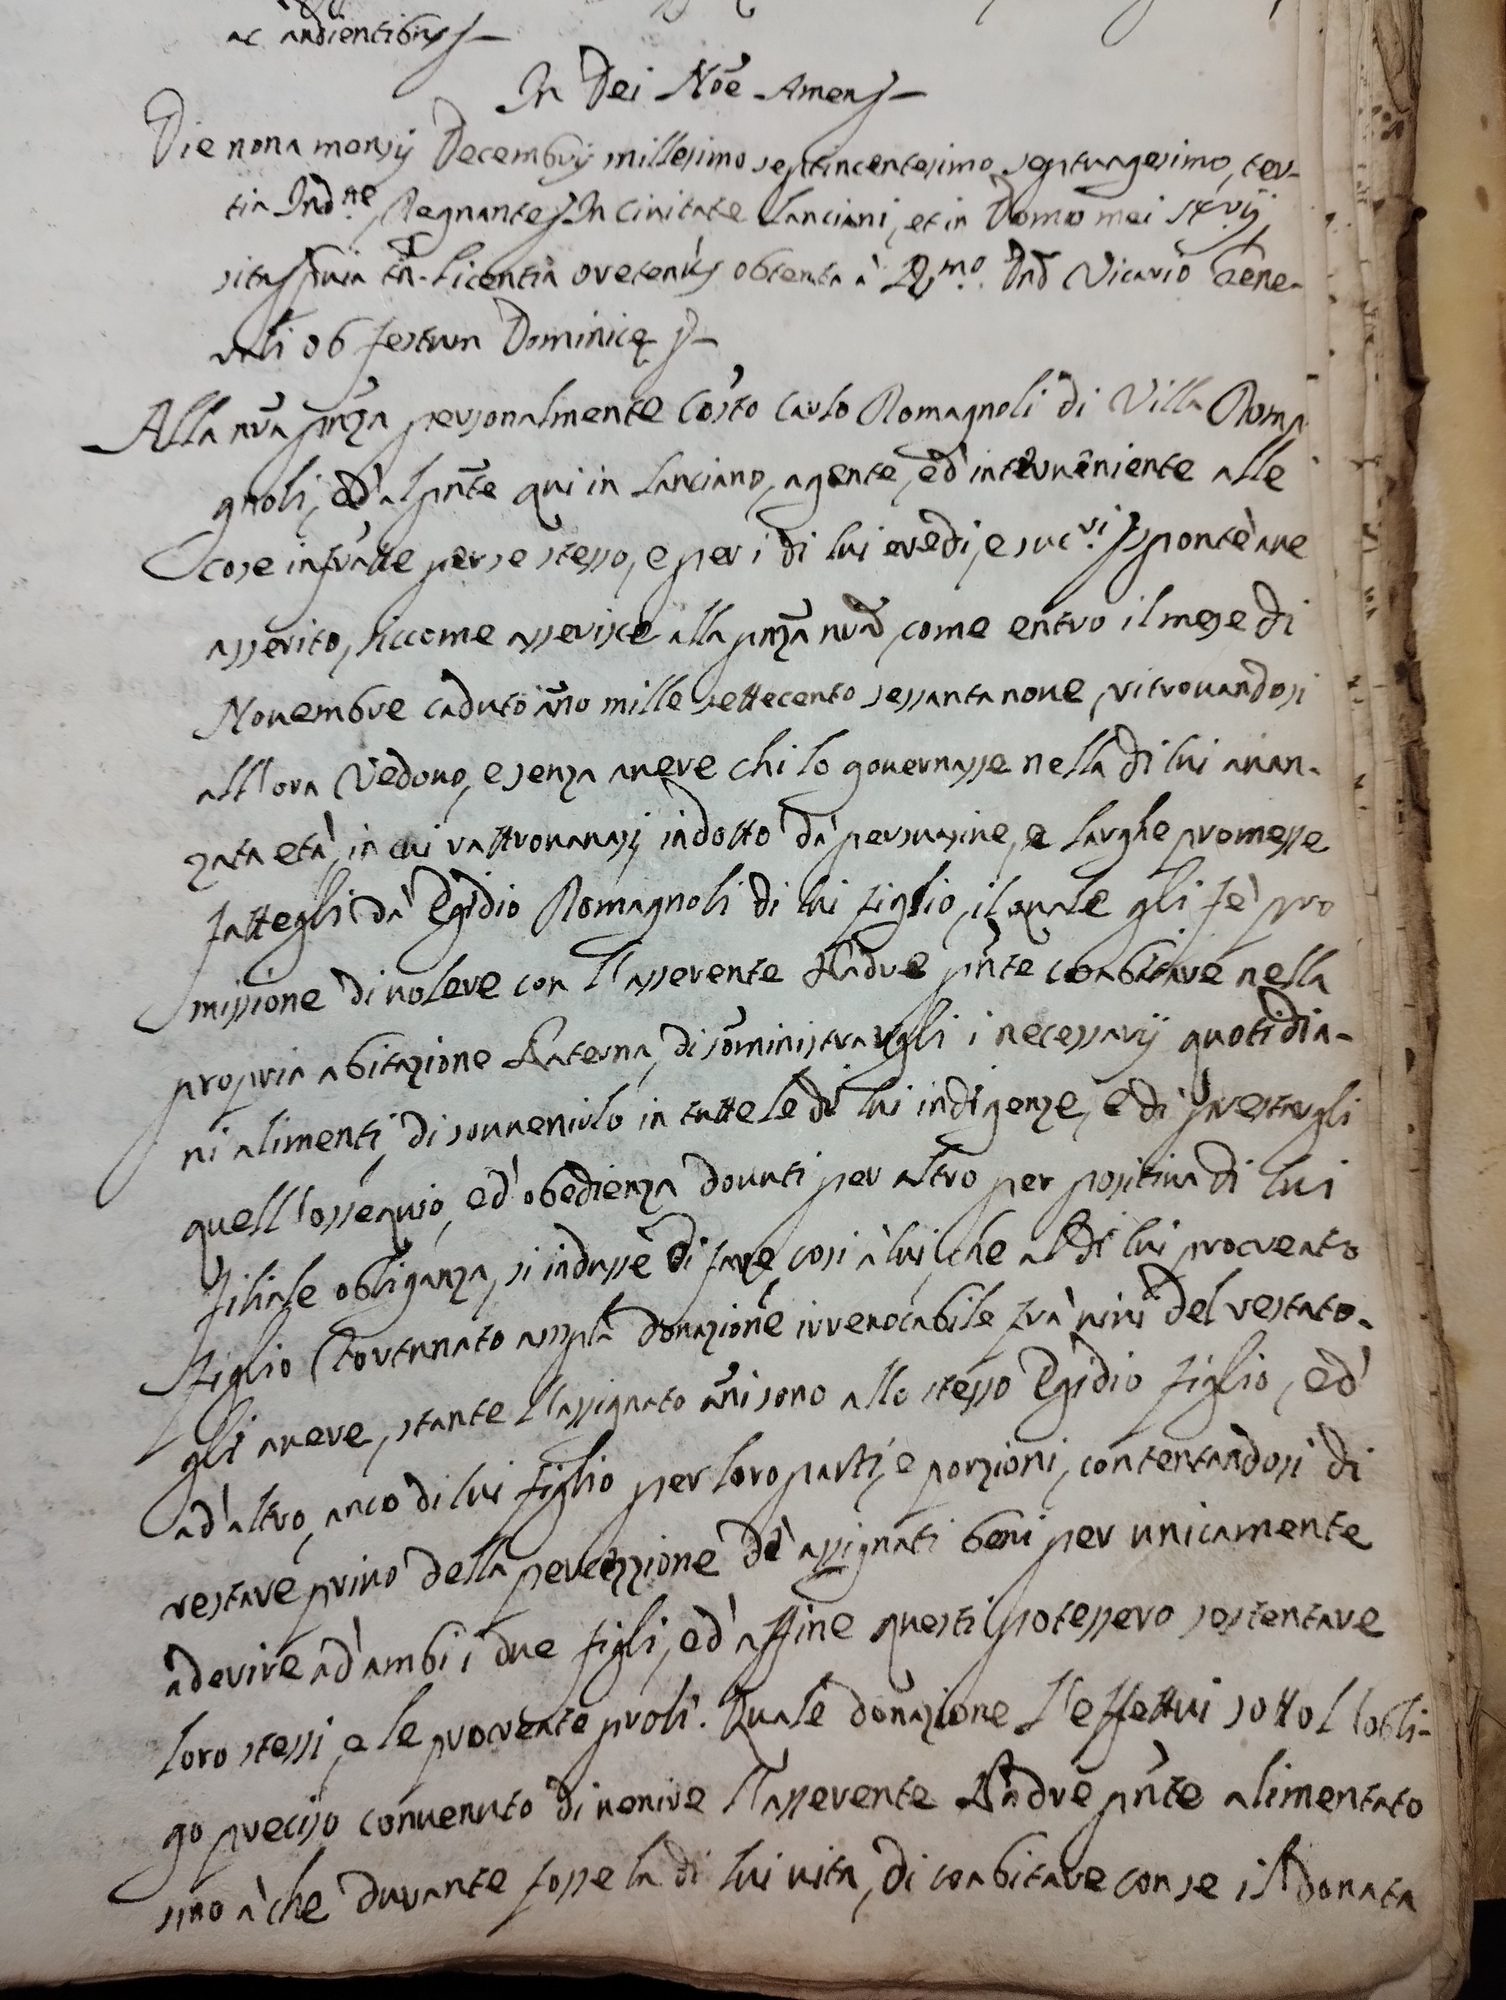 ac audientibus
In Dei Nõe Amen
Die nona mensij Decembrij millesimo septincentesimo septuagesimo, ter-
tia Ind.ne, Regnante In Civitate Lanciani, et in Domo mei
sita licentia oretenus obtenta à R.mo Dno Vicario Gene-
rali ob festum Dominicę
Alla nrã pñza personalmente Cõsto Carlo Romagnoli di Villa Roma
gnoli, ed' al pñte qui in Lanciano, agente, ed' interveniente alle
cose infratte per se stesso, e per i di lui eredi, e succ.ri spontè ave
asserito, siccome asserisce alla pnza nrã, come entro il mese di
Novembre caduto ãno mille settecento sessanta nove, ritrovandosi
all'ora Vedovo, e senza avere chi lo governasse nella di lui avan-
zata età, in cui rattrovavasi indotto dà persuasine, e larghe promesse
fattegli dà Egidio Romagnoli di lui figlio, il quale gli fè pro
missione di volere con l'asserente Padre pñte coabitare nella
propria abitazione Paterna, di sõministrargli i necessarij quotidia-
ni alimenti, di sovvenirlo in tutte le di lui indigenze, e di prestargli
quell'ossequio, ed' obedienza dovuti per altro per positiva di lui
filiale obliganza, si indusse di fare così à lui, che al di lui procreato
figlio Fortunato donazione irrevocabile frà vivi del restato-
gli avere, stante l'assignato ãni sono allo stesso Egidio figlio, ed'
ad' altro, anco di lui figlio per loro parti, e porzioni, contentandosi di
restare privo della percezzione de' assignati beni per unicamente
aderire ad' ambi i due figli, ed' affine questi potessero sostentare
loro stessi, e le procreate proli. Quale donazione l'effettui sotto l'obli-
go preciso convenuto di venire l'asserente Padre pñte alimentato
sino à che durante fosse la di lui vita, di coabitare con se il donata